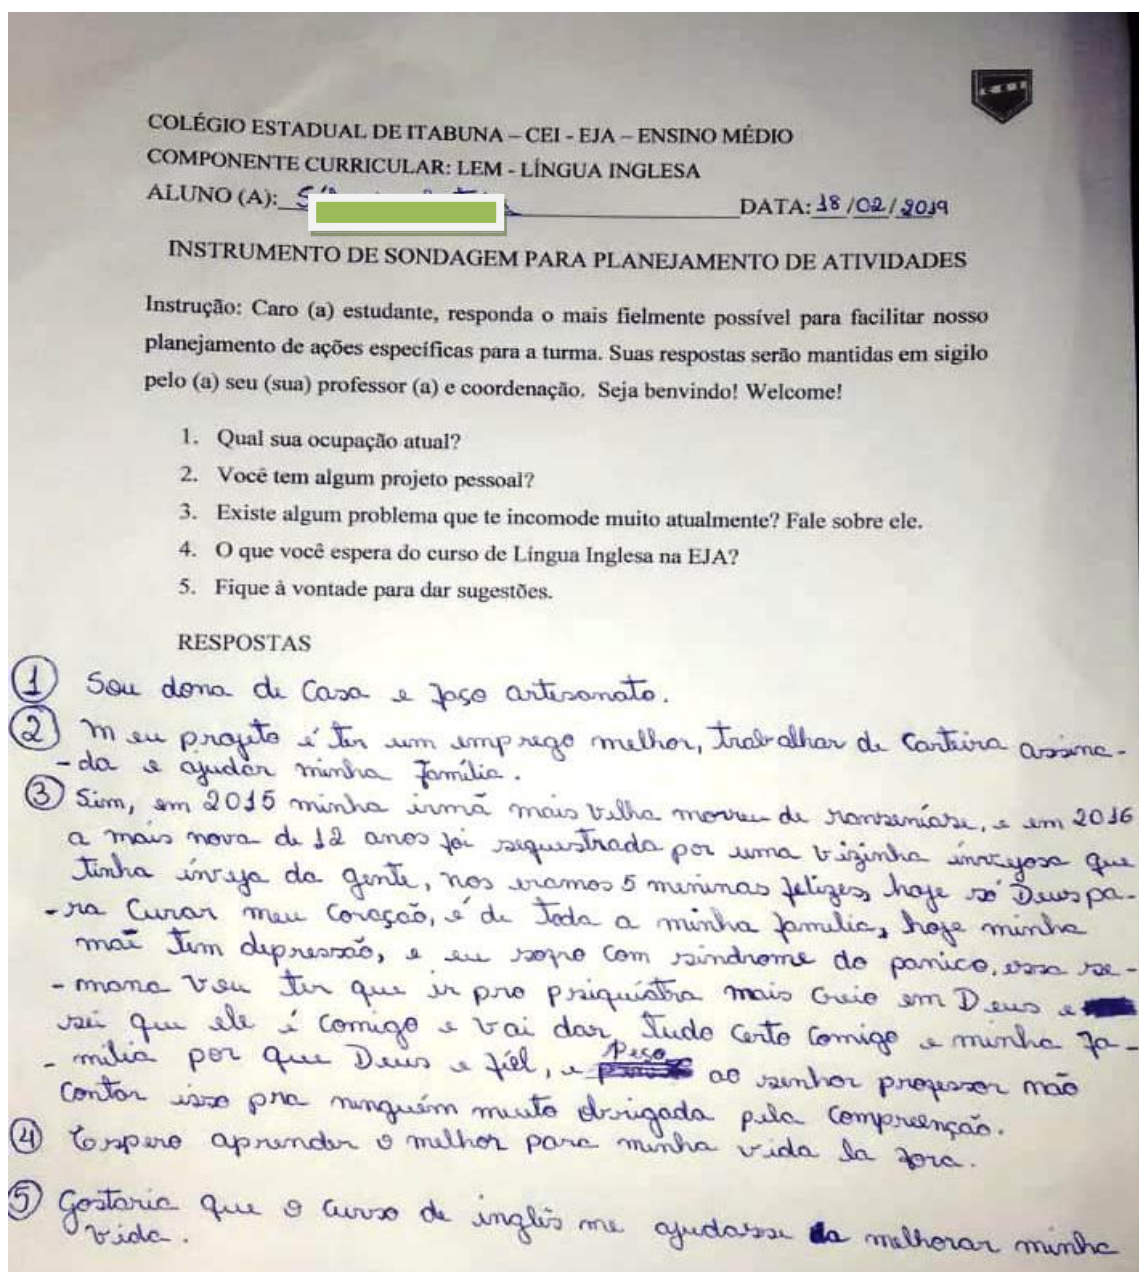 COLÉGIO ESTADUAL DE ITABUNA – CEI - EJA – ENSINO MÉDIO
COMPONENTE CURRICULAR: LEM - LÍNGUA INGLESA
ALUNO (A): DATA: 18/02/2019
INSTRUMENTO DE SONDAGEM PARA PLANEJAMENTO DE ATIVIDADES
Instrução: Caro (a) estudante, responda o mais fielmente possível para facilitar nosso
planejamento de ações específicas para a turma. Suas respostas serão mantidas em sigilo
pelo (a) seu (sua) professor (a) e coordenação. Seja benvindo! Welcome!
1. Qual sua ocupação atual?
2. Você tem algum projeto pessoal?
3. Existe algum problema que te incomode muito atualmente? Fale sobre ele.
4. O que você espera do curso de Língua Inglesa na EJA?
5. Fique à vontade para dar sugestões.
RESPOSTAS
1 Sou dona de Casa e faço artesanato.
2 Meu projeto é ter um emprego melhor, trabalhar de Carteira assina-
-da e ajudar minha família.
3 Sim, em 2015 minha irmã mais velha morreu de ranseníase, e em 2016
a mais nova de 12 anos foi sequestrada por uma vizinha invejosa que
tinha inveja da gente, nos eramos 5 meninas felizes, hoje só Deus pa-
-ra Curar meu Coração, é de toda a minha família, hoje minha
mãe tem depressão, e eu sofro com sindrome do panico, essa se-
-mana vou ter que ir pro psiquiatra mais Creio em Deus e
sei que ele é comigo e vai dar tudo certo comigo e minha fa-
-milia por que Deus e fiél, e Peço ao senhor professor não
contar isso pra ninguém muito obrigada pela compreenção.
4 Espero aprender o melhor para minha vida la fora.
5 Gostaria que o curso de inglês me ajudasse a melhorar minha
vida.